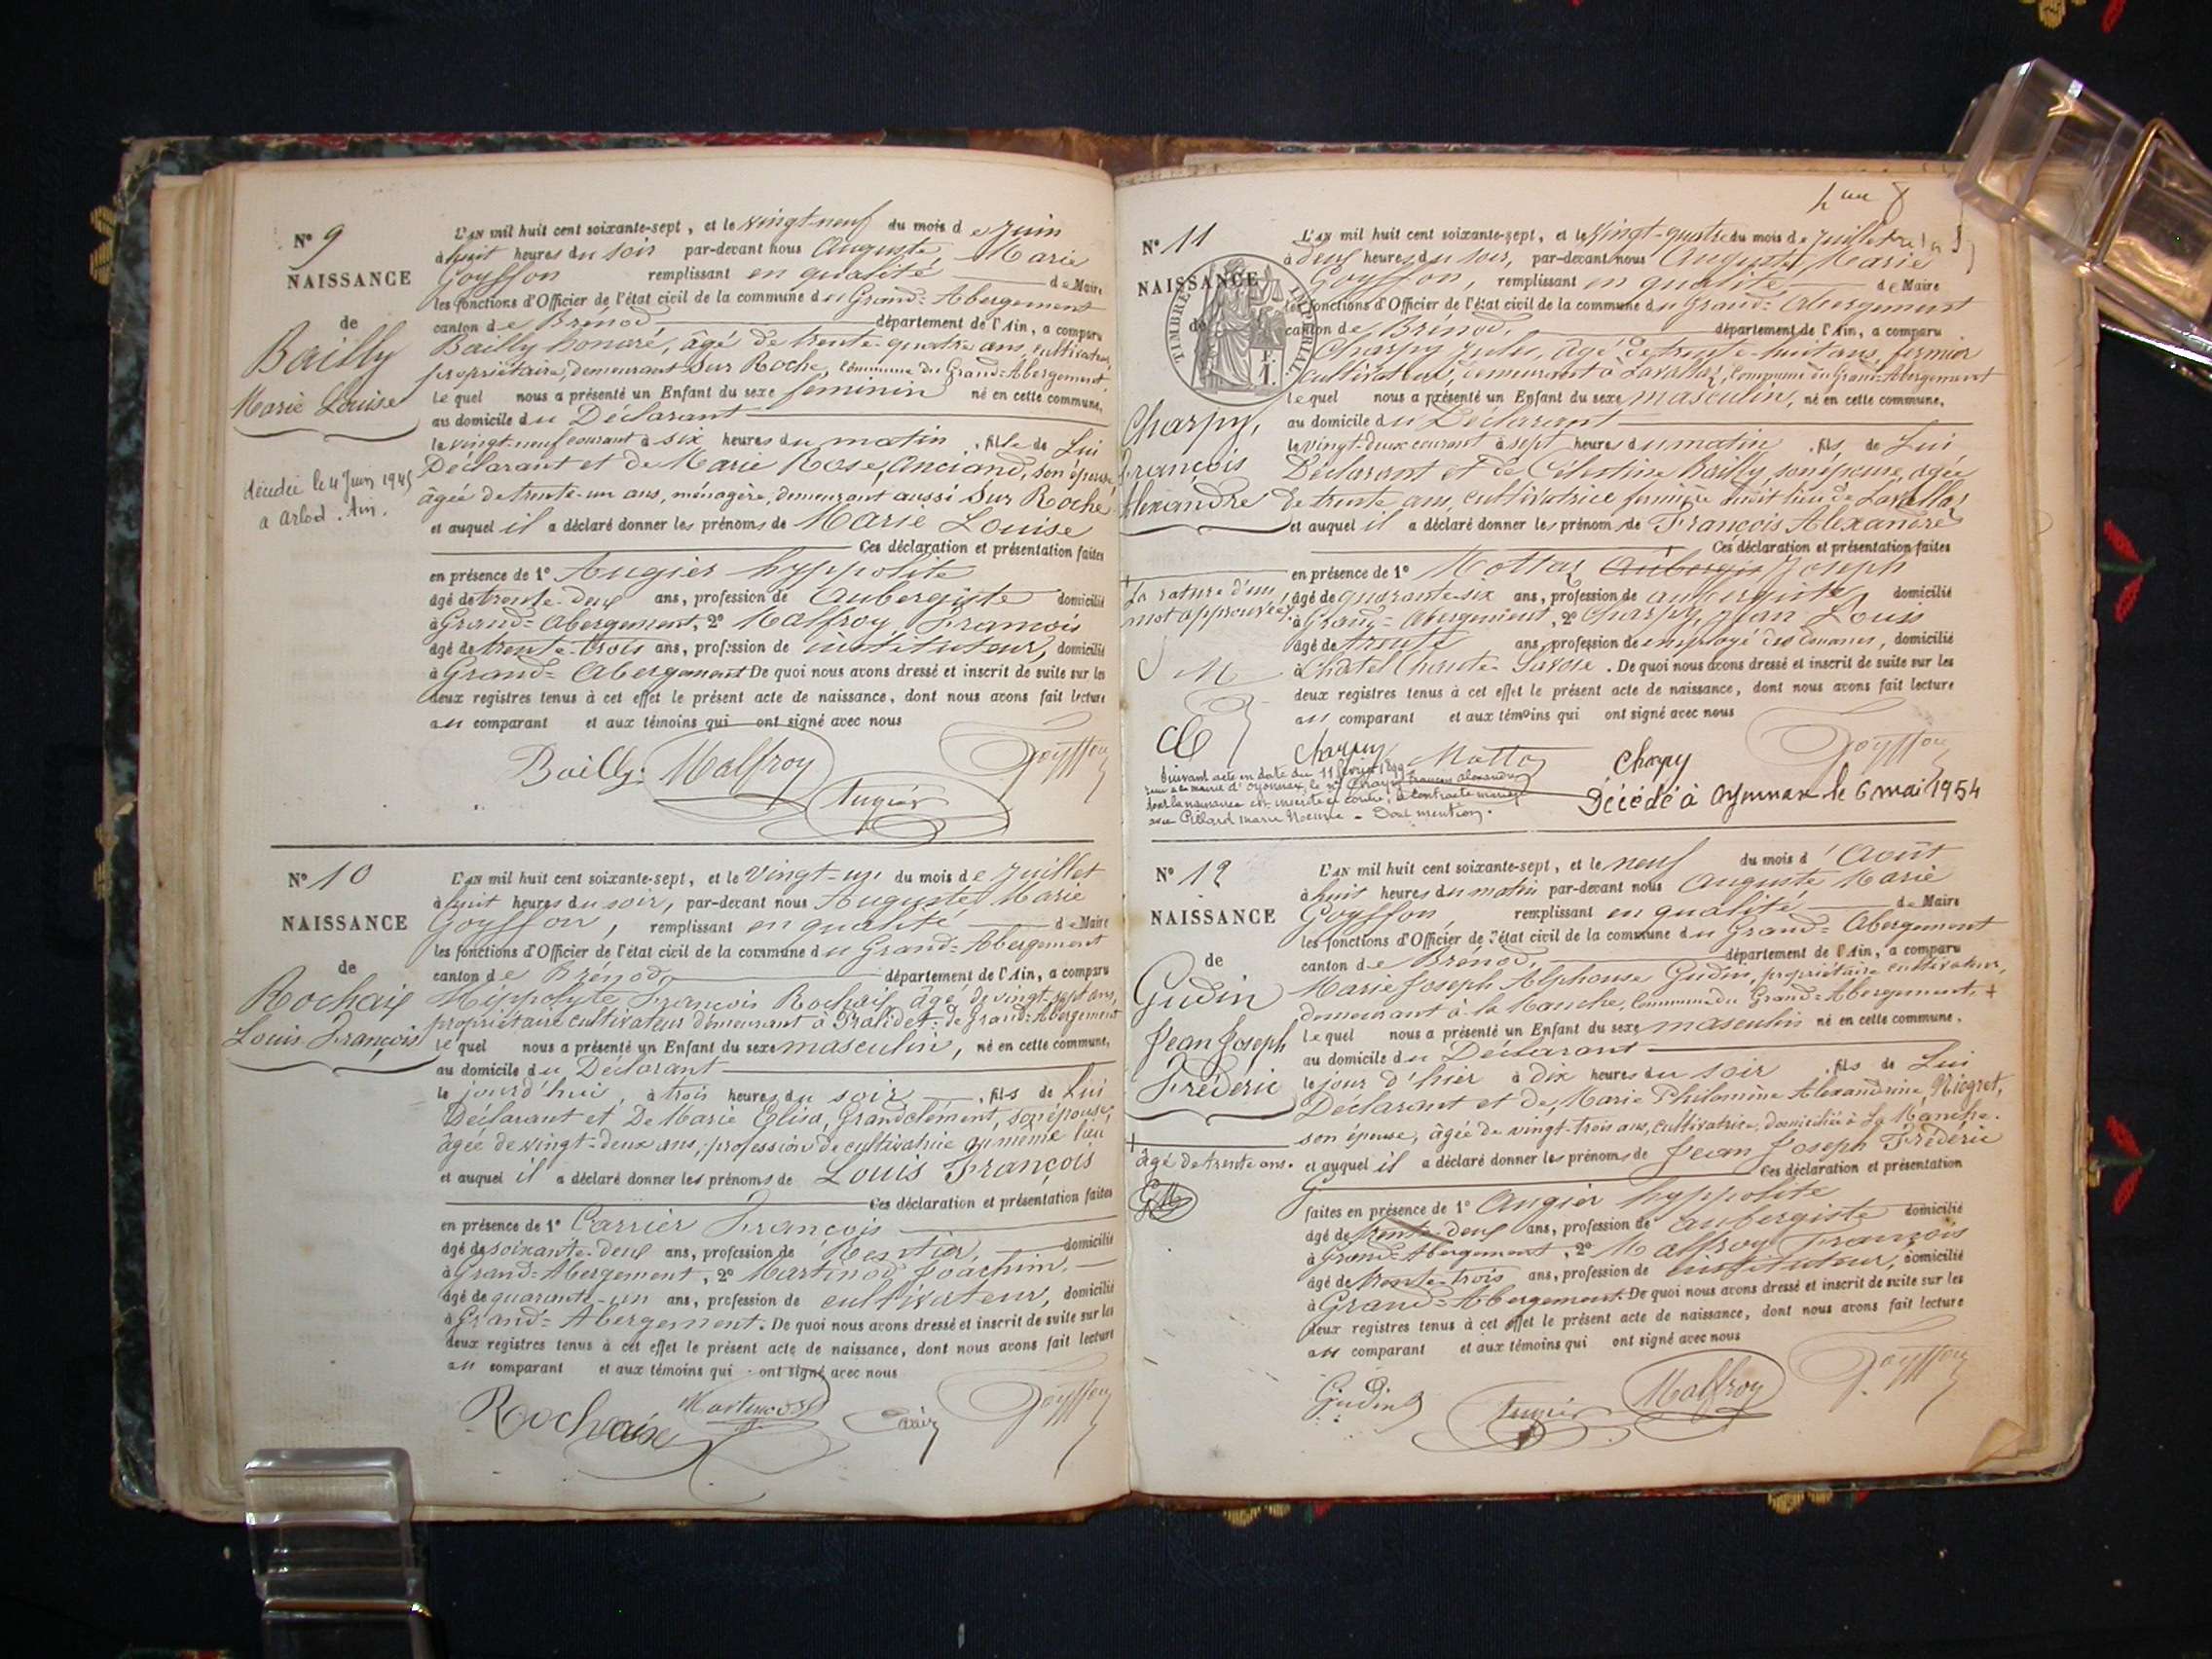 N° 9
NAISSANCE
de
Bailly
Marie Louise
décédée le 4 Juin 1945
a Arlod. Ain.
L'AN mil huit cent soixante-sept, et le vingt-neuf du mois de Juin
à huit heures du soir par-devant nous Auguste, Marie
Goyffon remplissant en qualité de Maire
les fonctions d'Officier de l'état civil de la commune du Grand-Abergement
canton de Brénod département de l'Ain, a comparu
Bailly honoré, âgé de trente-quatre ans, cultivateur,
propriétaire, demeurant Sur Roche, commune du Grand-Abergement
lequel nous a présenté un Enfant du sexe féminin né en cette commune,
au domicile du Déclarant
le vingt-neuf courant à six heures du matin, fille de Lui
Déclarant et de Marie Rose, Anciand, son épouse,
âgée de trente-un ans, ménagère, demeurant aussi Sur Roche
et auquel il a déclaré donner les prénoms de Marie Louise
Ces déclaration et présentation faites
en présence de 1° Augier hyppolite
âgé de trente-deux ans, profession de Aubergiste domicilié
à Grand-Abergement, 2° Malfroy, François
âgé de trente-trois ans, profession de instituteur, domicilié
à Grand-Abergement De quoi nous avons dressé et inscrit de suite sur les
deux registres tenus à cet effet le présent acte de naissance, dont nous avons fait lecture
au comparant et aux témoins qui ont signé avec nous
Bailly Malfroy Goyffon
Augier
N° 10
NAISSANCE
de
Rochaix
Louis François
L'AN mil huit cent soixante-sept, et le Vingt-un du mois de Juillet
à huit heures du soir, par-devant nous Auguste Marie
Goyffon, remplissant en qualité de Maire
les fonctions d'Officier de l'état civil de la commune du Grand-Abergement
canton de Brénod, département de l'Ain, a comparu
Hippolyte François Rochaix, âgé de vingt-sept ans,
propriétaire cultivateur demeurant à de Grand-Abergement
lequel nous a présenté un Enfant du sexe masculin, né en cette commune,
au domicile du Déclarant
le jourd'hui, à trois heures du soir, fils de Lui
Déclarant et De Marie Elisa, Grandclément, son épouse,
âgée de vingt-deux ans, profession de cultivatrice au même lieu
et auquel il a déclaré donner les prénoms de Louis François
Ces déclaration et présentation faites
en présence de 1° Carrier François
âgé de soixante-deux ans, profession de Rentier, domicilié
à Grand-Abergement, 2° Martinod Joachim,
âgé de quarante-un ans, profession de cultivateur, domicilié
à Grand-Abergement. De quoi nous avons dressé et inscrit de suite sur les
deux registres tenus à cet effet le présent acte de naissance, dont nous avons fait lecture
au comparant et aux témoins qui ont signé avec nous
Rochaix Martinod Goyffon
N° 11
NAISSANCE
de
TIMBRE IMPERIAL
Charpy,
François
Alexandre
La rature d'un
mot approuvée.
J M
L'AN mil huit cent soixante-sept, et le Vingt-quatre du mois de Juillet
à deux heures du soir, par-devant nous Auguste, Marie
Goyffon, remplissant en qualité de Maire
les fonctions d'Officier de l'état civil de la commune du Grand-Abergement
canton de Brénod, département de l'Ain, a comparu
Charpy Jules, âgé de trente-huit ans, fermier
cultivateur, demeurant à Lavallaz, Commune du Grand-Abergement
lequel nous a présenté un Enfant du sexe masculin, né en cette commune,
au domicile du Déclarant
le vingt-deux courant à sept heures du matin, fils de Lui
Déclarant et de Célestine Bailly, son épouse, âgée
de trente ans, cultivatrice fermière audit lieu de Lavallaz
et auquel il a déclaré donner les prénom de François Alexandre
Ces déclaration et présentation faites
en présence de 1° Mottaz Aubergis Joseph
âgé de quarante-six ans, profession de aubergiste, domicilié
à Grand-Abergement, 2° Charpy, Jean Louis
âgé de trente ans, profession de employé des douanes, domicilié
à Châtel (haute-Savoie. De quoi nous avons dressé et inscrit de suite sur les
deux registres tenus à cet effet le présent acte de naissance, dont nous avons fait lecture
au comparant et aux témoins qui ont signé avec nous
Charpy Mottaz Charpy Goyffon
Suivant acte en date du 11 février 1899
reçu à la mairie d'Oyonnax, le sr Charpy François Alexandre
dont la naissance est inscrite ci contre, a contracté mariage
avec marie - Dont mention.
Décédé à Oyonnax le 6 mai 1954
N° 12
NAISSANCE
de
Gudin
Jean Joseph
Frédéric
+
âgé de trente ans.
L'AN mil huit cent soixante-sept, et le neuf du mois d'Août
à huit heures du matin par-devant nous Auguste Marie
Goyffon, remplissant en qualité de Maire
les fonctions d'Officier de l'état civil de la commune du Grand-Abergement
canton de Brénod, département de l'Ain, a comparu
Marie Joseph Alphonse Gudin, propriétaire cultivateur,
demeurant à la Manche, Commune du Grand-Abergement, +
lequel nous a présenté un Enfant du sexe masculin né en cette commune,
au domicile du Déclarant
le jour d'hier à dix heures du soir, fils de Lui
Déclarant et de Marie Philomène Alexandrine, Niogret,
son épouse, âgée de vingt-trois ans, cultivatrice, domiciliée à La Manche.
et auquel il a déclaré donner les prénoms de Jean Joseph Frédéric
Ces déclaration et présentation
faites en présence de 1° Augier hyppolite
âgé de trente-deux ans, profession de aubergiste domicilié
à Grand-Abergement, 2° Malfroy François
âgé de trente-trois ans, profession de instituteur, domicilié
à Grand-Abergement De quoi nous avons dressé et inscrit de suite sur les
deux registres tenus à cet effet le présent acte de naissance, dont nous avons fait lecture
au comparant et aux témoins qui ont signé avec nous
Gudin Augier Malfroy Goyffon